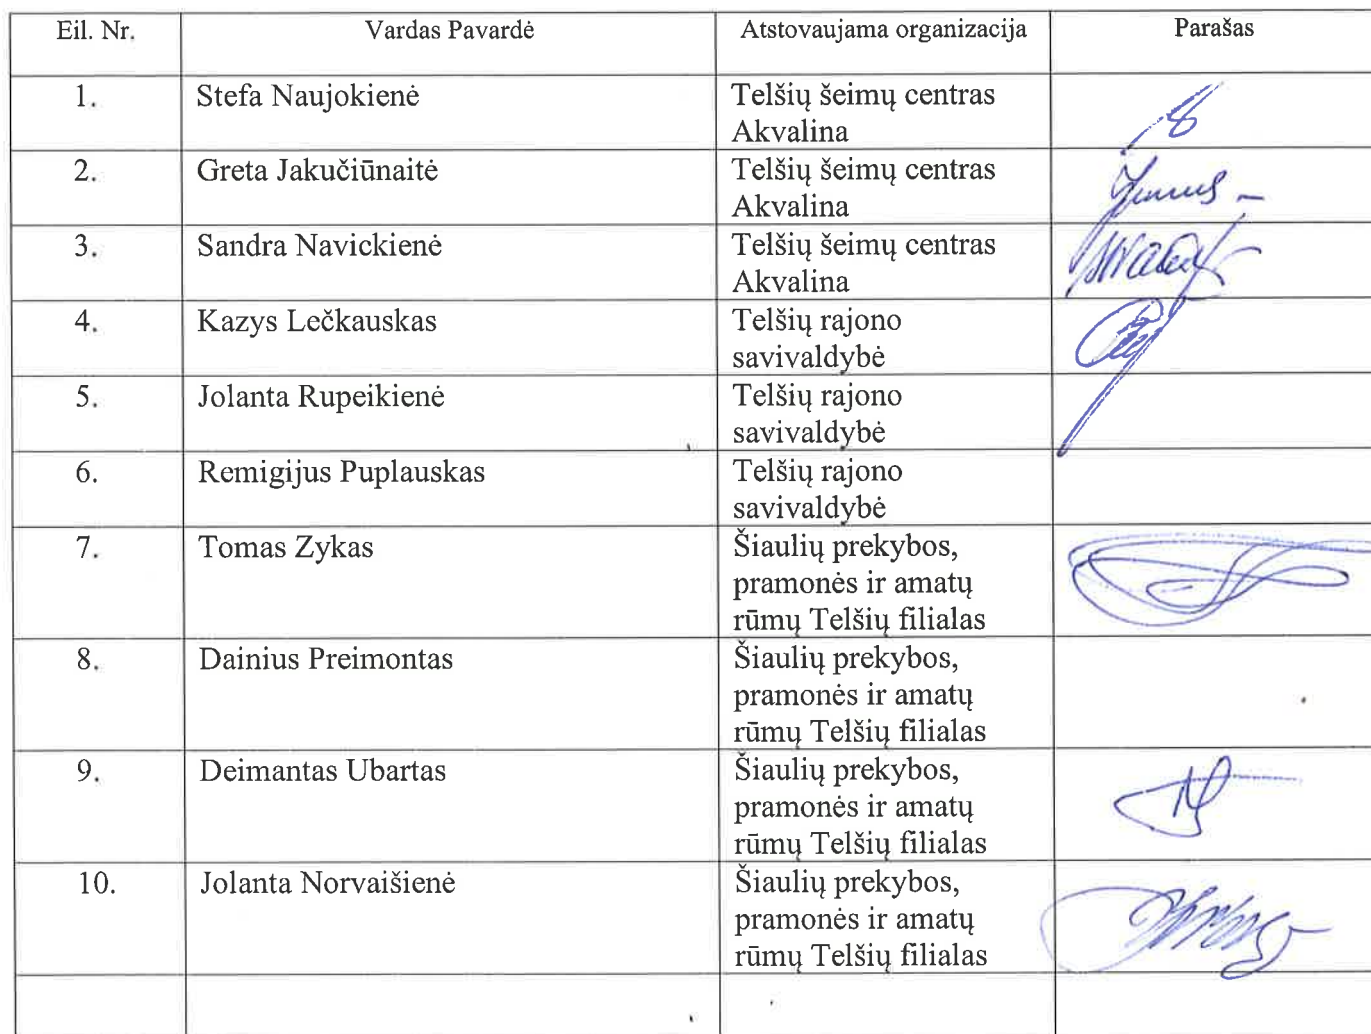 Eil. Nr. Vardas Pavardė Atstovaujama organizacija Parašas
1. Stefa Naujokienė Telšių šeimų centras
Akvalina
2. Greta Jakučiūnaitė Telšių šeimų centras
Akvalina
3. Sandra Navickienė Telšių šeimų centras
Akvalina
4. Kazys Lečkauskas Telšių rajono
savivaldybė
5. Jolanta Rupeikienė Telšių rajono
savivaldybė
6. Remigijus Puplauskas Telšių rajono
savivaldybė
7. Tomas Zykas Šiaulių prekybos,
pramonės ir amatų
rūmų Telšių filialas
8. Dainius Preimontas Šiaulių prekybos,
pramonės ir amatų
rūmų Telšių filialas
9. Deimantas Ubartas Šiaulių prekybos,
pramonės ir amatų
rūmų Telšių filialas
10. Jolanta Norvaišienė Šiaulių prekybos,
pramonės ir amatų
rūmų Telšių filialas